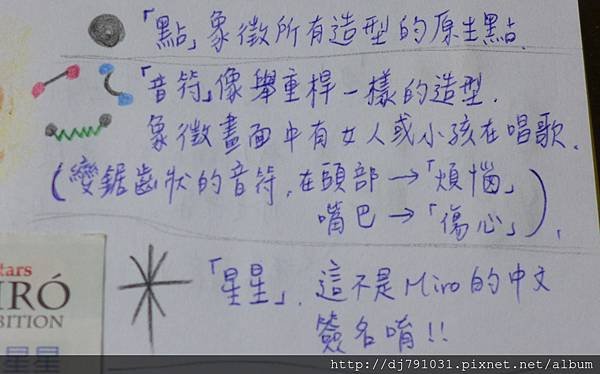 「點」象徵所有造型的原生點.
「音符」像舉重桿一樣的造型.
象徵畫面中有女人或小孩在唱歌.
(變鋸齒狀的音符,在頭部→「煩惱」
嘴巴→「傷心」),
「星星」.這不是Miro的中文
簽名唷!!
tars
IRÓ
IBITION
星星
http://dj791031.pixnet.net/album